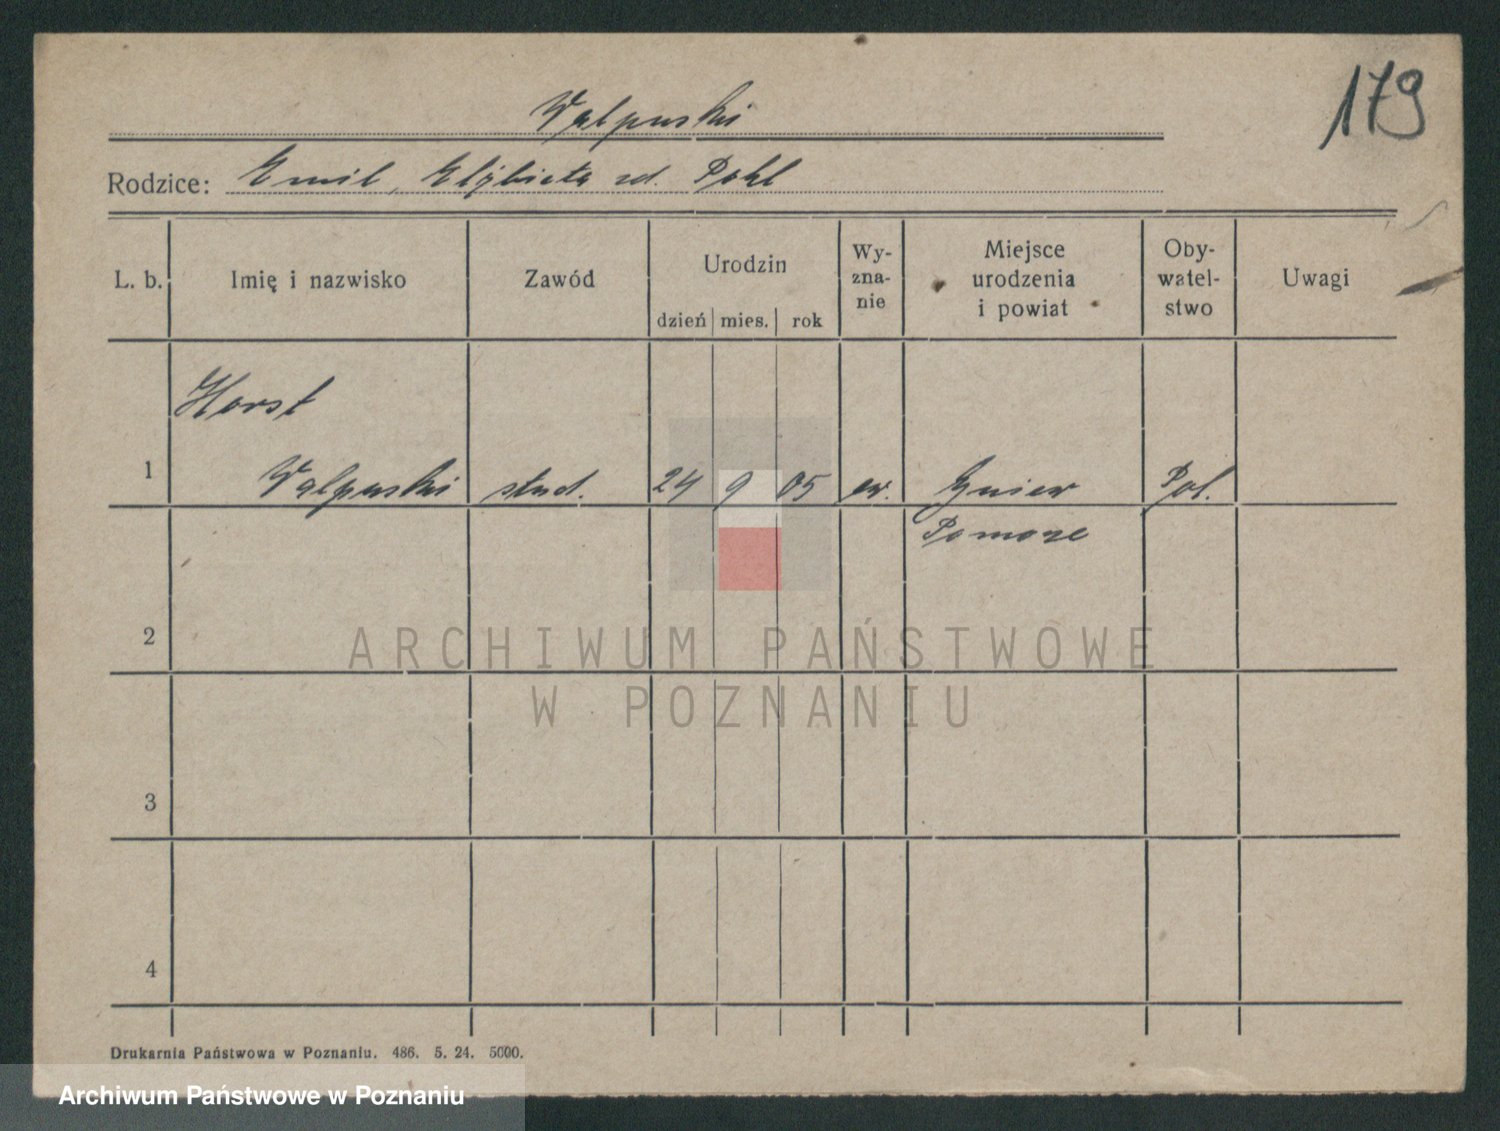 179
Walpuski
Rodzice: Emil, Elżbieta zd. Pohl
L. b. Imię i nazwisko Zawód Urodzin dzień mies. rok Wy-zna-nie Miejsce urodzenia i powiat Oby-watel-stwo Uwagi
Horst
1 Walpuski stud. 24 9 05 ew. Gniew Pol.
Pomorze
2
ARCHIWUM PAŃSTWOWE
W POZNANIU
3
4
Drukarnia Państwowa w Poznaniu. 486. 5. 24. 5000.
Archiwum Państwowe w Poznaniu